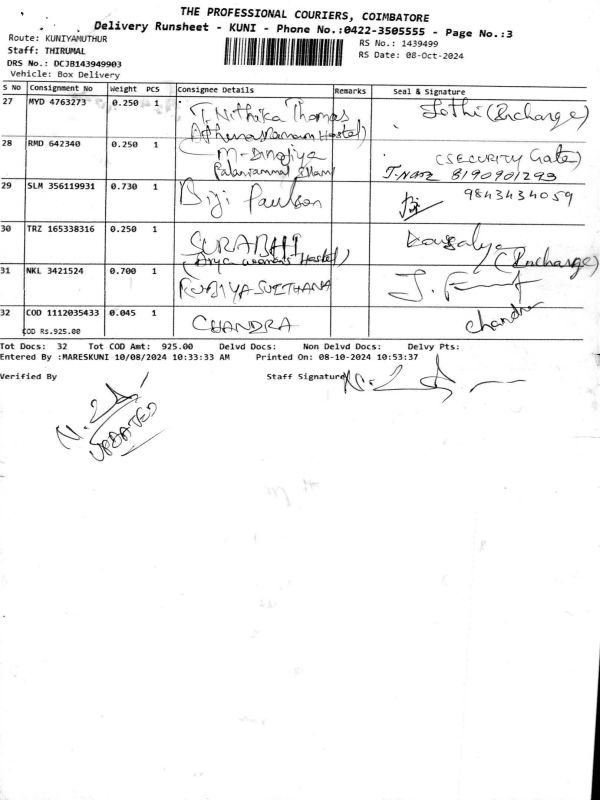 THE PROFESSIONAL COURIERS, COIMBATORE
Delivery Runsheet - KUNI - Phone No.:0422-3505555 - Page No.:3
Route: KUNIYAMUTHUR
RS No.: 1439499
Staff: THIRUMAL
RS Date: 08-Oct-2024
DRS No.: DCJB143949903
Vehicle: Box Delivery
S No Consignment No Weight PCS Consignee Details Remarks Seal & Signature
27 MYD 4763273 0.250 1 T. Nithika Thomas Jothi (Incharge)
Hostel)
28 RMD 642340 0.250 1 M-Dinojiya (SECURITY Gate)
8190901293
29 SLM 356119931 0.730 1 Biji Paulson 9843434059
30 TRZ 165338316 0.250 1 SURABHI Kousalya
(Arya women's Hostel) (Incharge)
31 NKL 3421524 0.700 1
32 COD 1112035433 0.045 1 CHANDRA chandra
COD RS.925.00
Tot Docs: 32 Tot COD Amt: 925.00 Delvd Docs: Non Delvd Docs: Delvy Pts:
Entered By :MARESKUNI 10/08/2024 10:33:33 AM Printed On: 08-10-2024 10:53:37
Verified By Staff Signature
UPDATED